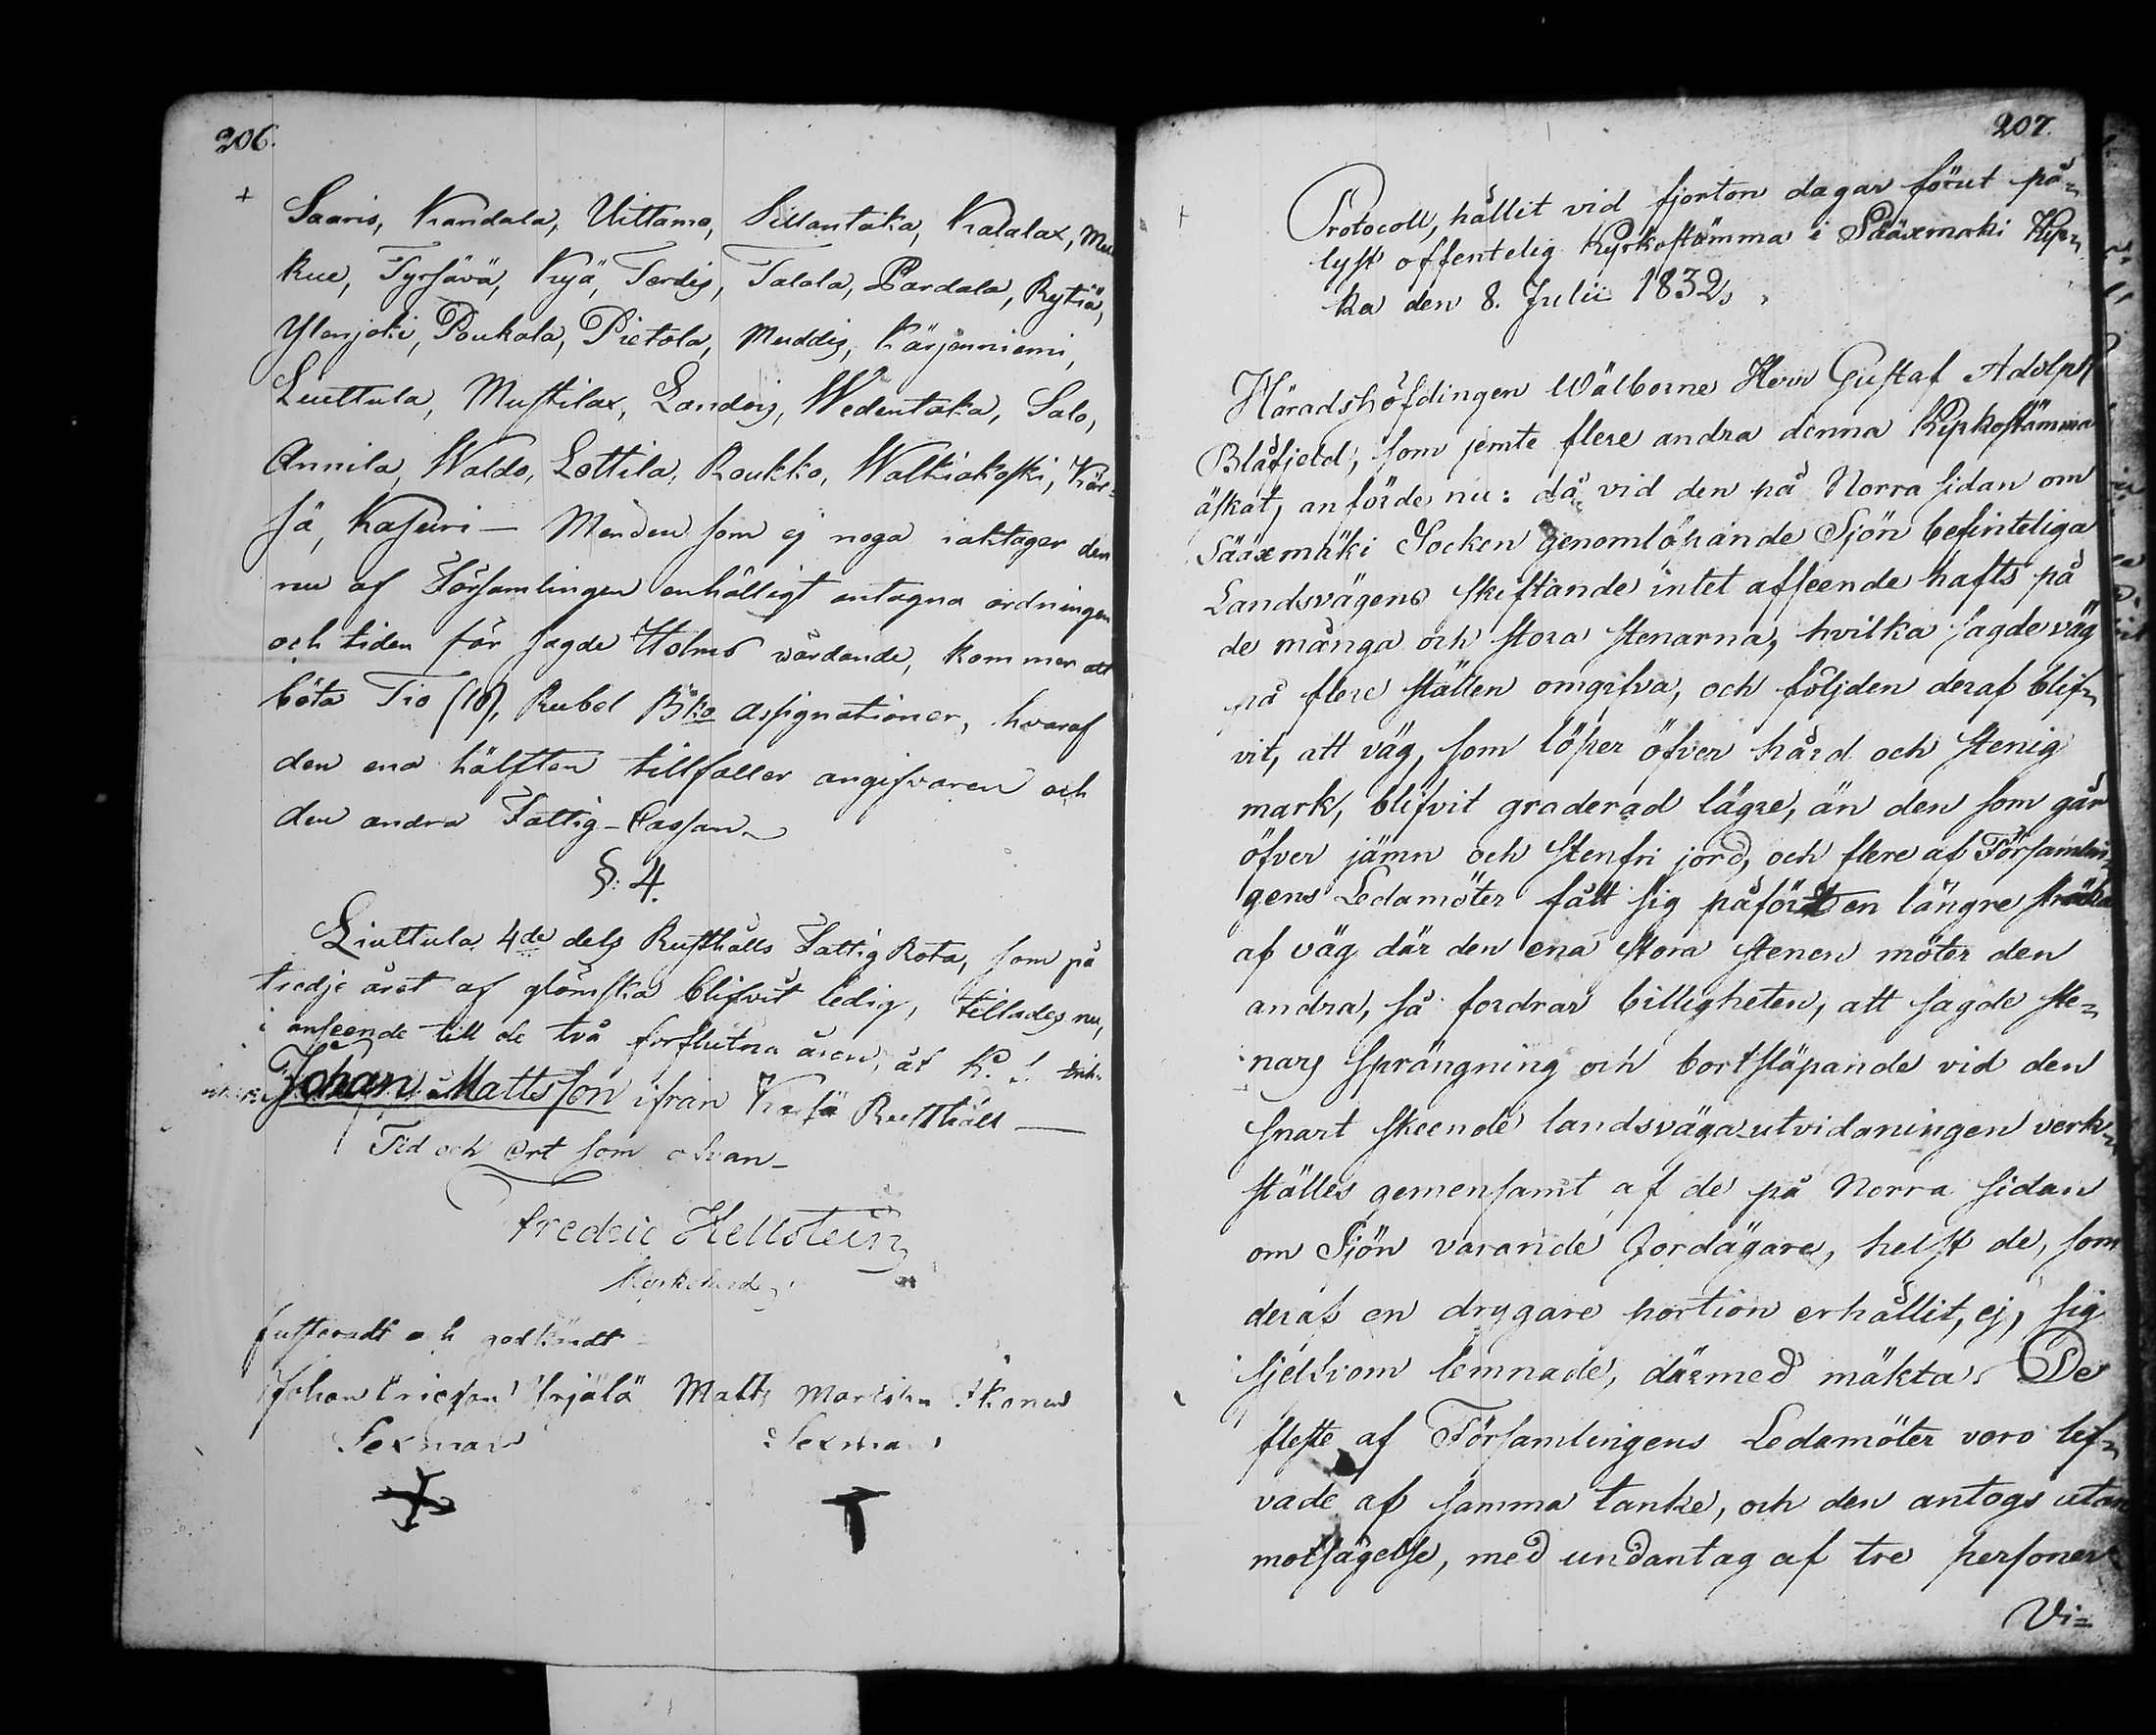 206.
Saaris, Kandala, Uittamo, Sillantaka, Kalalax, Mu
kue, Tyrsävä, Kyä, Terdis, Talala, Pardala, Rytiä,
Ylenjoki, Poukala, Pietola, Muddis, Kärjenniemi,
Liuttula, Mustilax, Landois, Wedentaka, Salo,
Annila, Waldo, Lottila, Roukko, Walkiakoski, Kär-
sä, Kasuri — Menden som ej noga iakttager den
nu af Församlingen enhälligt antagna ordningen
och tiden för sagde Holms vårdande, kommer att
böta Tio (10), Rubel Bko Assignationer, hvaraf
den ena hälften tillfaller angifvaren och
den andra Fattig-Cassan.
§: 4.
Liuttula 4de dels Rusthålls Fattig Rota, som på
tredje året af glömska blifvit ledig, tillades nu,
i anseende till de två förflutna åren, åt
Johan Mattsson ifrån Karsä Rusthåll —
Tid och Ort som ofvan_
Fredric Hellstein
Kyrkoherde
Justeradt och godkändt
Johan Ericsson Yrjälä Matts Martin
Sexman Sexman
207.
Protocoll, hållit vid fjorton dagar förut på=
lyst offentelig Kyrkostämma i Sääxmäki Kyr=
ka den 8. Julii 1832,
Häradshöfdingen Wälborne Herr Gustaf Adolph
Blåfjeld, som jemte flere andra denna Kyrkostämma
äskat, anförde nu: då vid den på Norra sidan om
Sääxmäki Socken genomlöpande Sjön befinteliga
Landsvägens skiftande intet afseende hafts på
de många och stora stenarna, hvilka sagde väg
på flere ställen omgifva, och följden deraf blif=
vit, att väg, som löper öfver hård och stenig
mark, blifvit graderad lägre, än den som går
öfver jämn och Stenfri jord, och flere af Församlin=
gens Ledamöter fått sig påfördt en längre sträcka
af väg där den ena stora stenen möter den
andra, så fordrar billigheten, att sagde ste=
nars sprängning och bortsläpande vid den
snart skeende landsväga utvidgningen verk=
ställes gemensamt af de på Norra sidan
om Sjön varande Jordägare, helst de, som
deraf en drygare portion erhållit, ej, sig
sjelfvom lemnade, därmed mäkta. De
fleste af Församlingens Ledamöter voro lif=
vade af samma tanke, och den antogs utan
motsägelse, med undantag af tre personer
Vi=